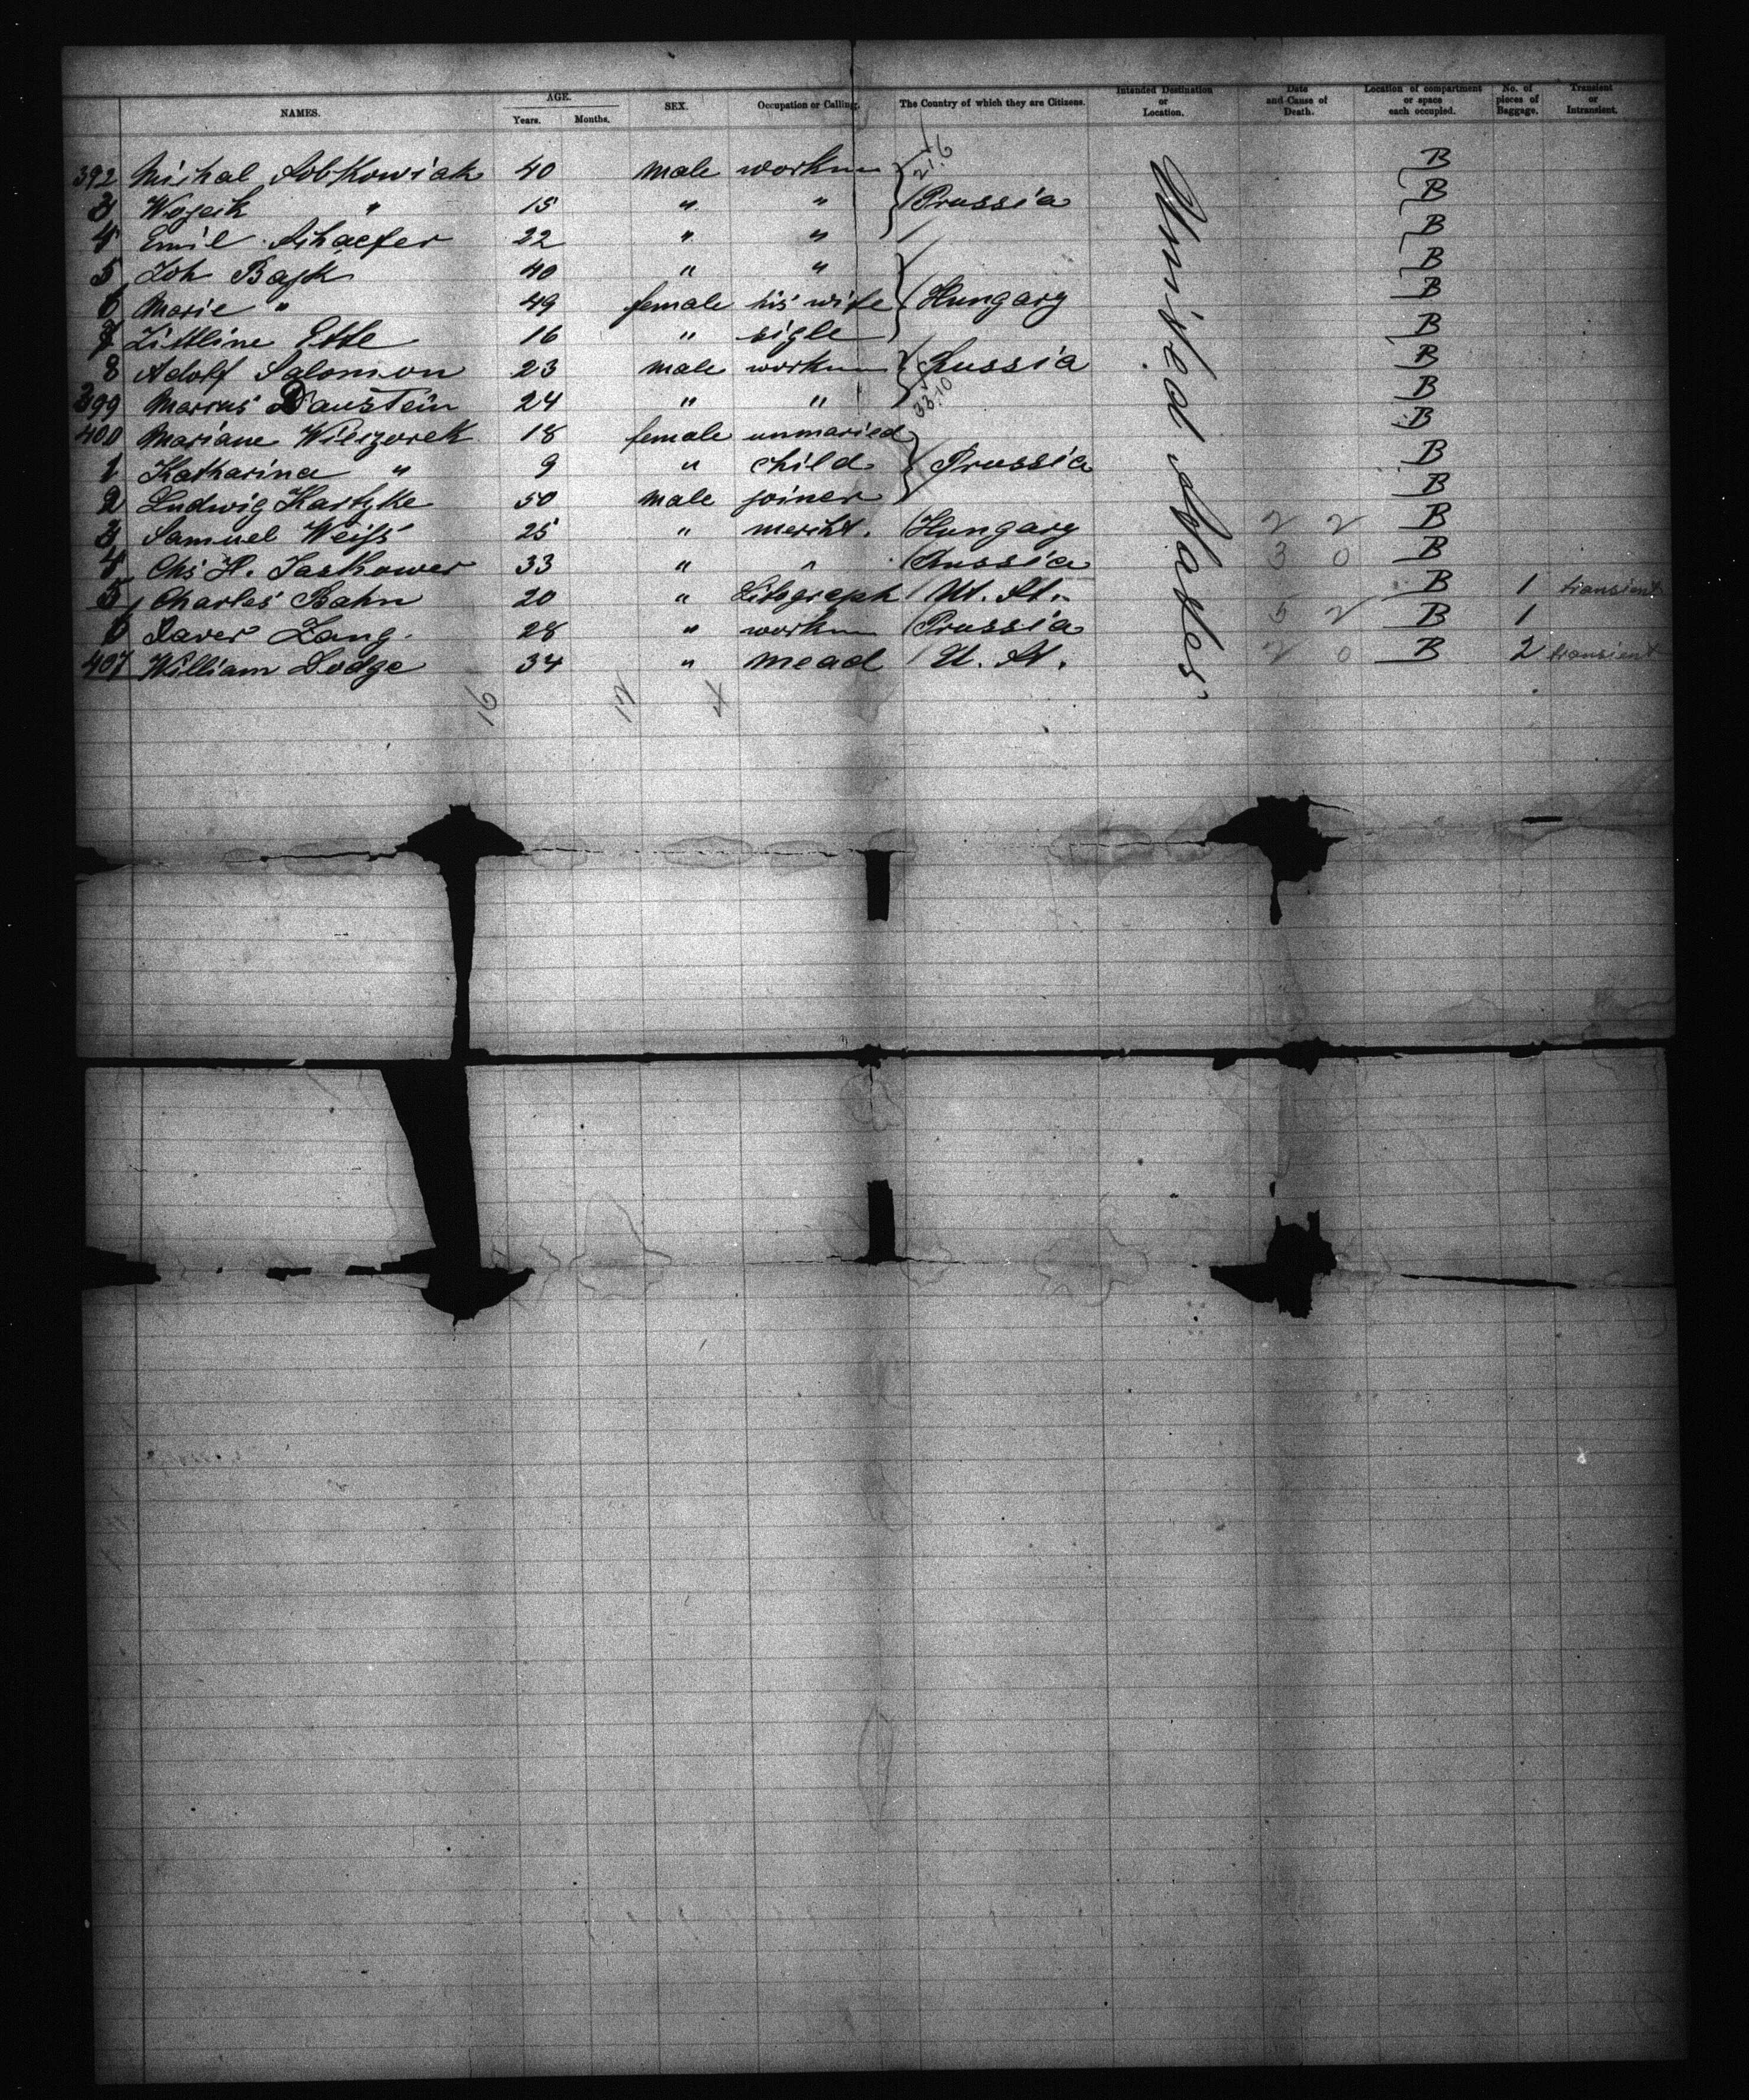 NAMES. AGE. Years. Months. SEX. Occupation or Calling. The Country of which they are Citizens. Intended Destination or Location. Date and Cause of Death. Location of compartment or space each occupied. No. of pieces of Baggage. Transient or Intransient.
392 Michal Sobkowiak 40 male workm B
3 Wojcik " 15 " " Prussia B
4 Emil Schaefer 22 " " B
5 Joh Bajk 40 " " B
6 Marie " 49 female his wife Hungary B
7 16 " sigle B
8 Adolf Salomon 23 male workm Russia B
399 Marcus Daustein 24 " " B
400 Mariane Wieczorek 18 female unmaried B
1 Katharina " 9 " child Prussia B
2 Ludwig 50 male joiner B
3 Samuel Weiss 25 " mercht. Hungary 2 2 B
4 Chs H. Jaskower 33 " " Russia 3 0 B
5 Charles Bahn 20 " Litograph U. St. B 1 transient
6 Xaver Zang. 28 " workm Prussia 5 2 B 1
407 William Dodge 34 " mead U. St. 2 0 B 2 transient
United States
21.6
33.10
16 12 4